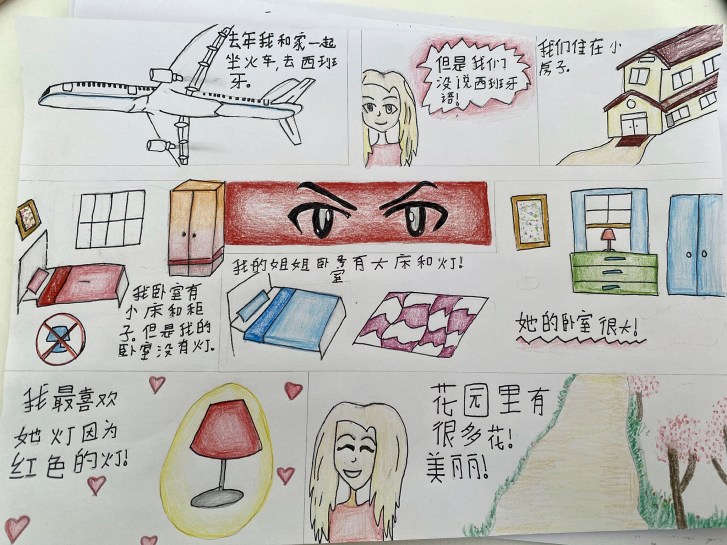 去年我和家一起
坐火车,去西班
牙。
但是我们
没说西班牙
语!
我们住在小
房子.
我卧室有
小床和柜
子.但是我的
卧室没有灯.
我的姐姐卧室有大床和灯!
她的卧室很大!
我最喜欢
她灯因为
红色的灯!
花园里有
很多花!
美丽!